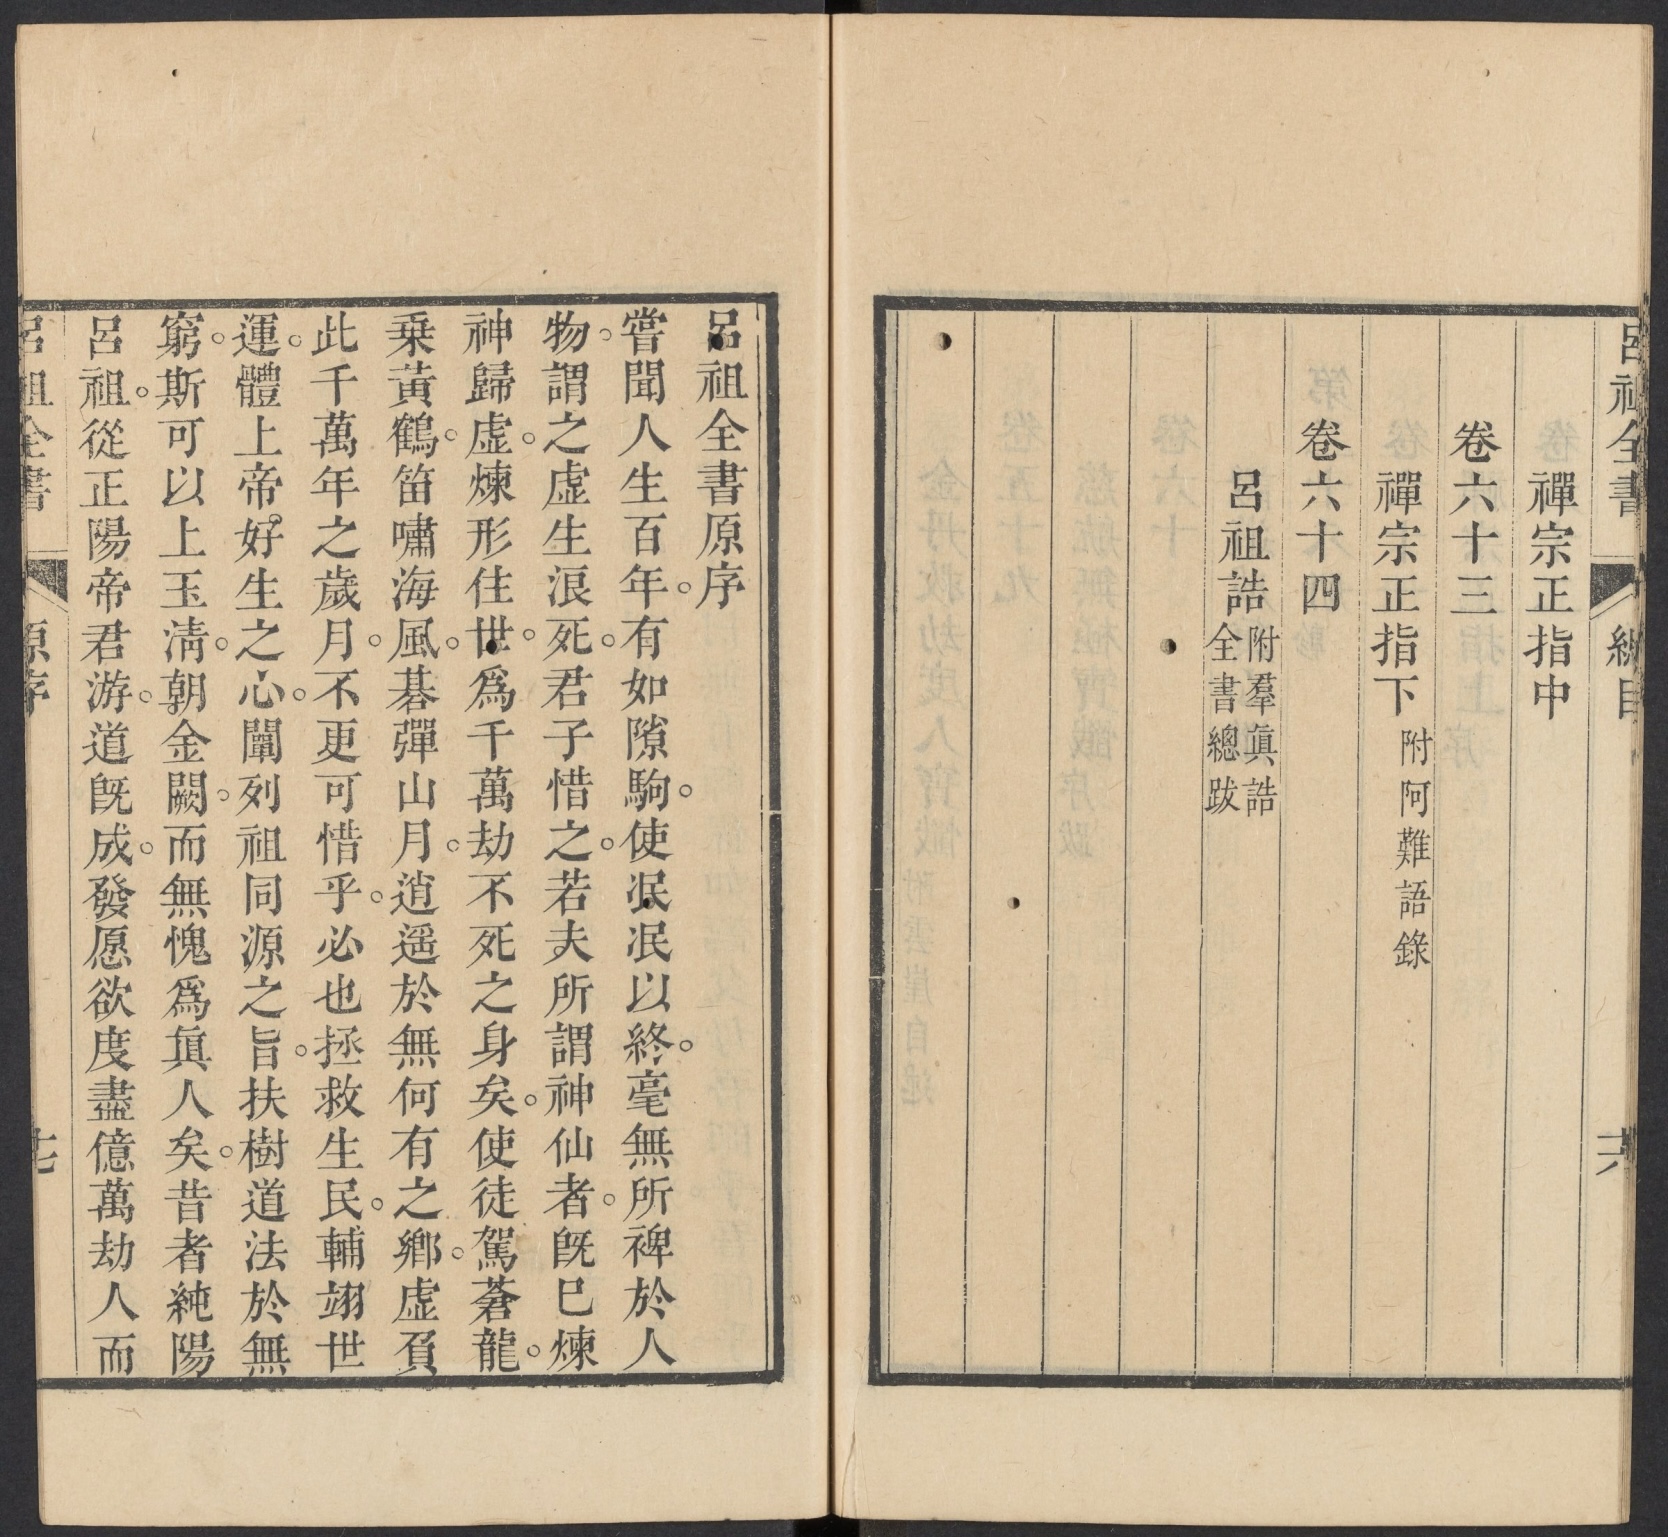 呂祖全書 總目 十六
禪宗正指中
卷六十三
禪宗正指下 附阿難語錄
卷六十四
呂祖誥 附羣眞誥 全書總跋
呂祖全書原序
嘗聞人生百年。有如隙駒。使泯泯以終。毫無所裨於人
物。謂之虛生浪死。君子惜之。若夫所謂神仙者。旣巳煉
神歸虛。煉形住世。爲千萬劫不死之身矣。使徒駕蒼龍。
乗黃鶴。笛嘯海風。碁彈山月。逍遥於無何有之鄉。虛負
此千萬年之歲月。不更可惜乎。必也拯救生民。輔翊世
運。體上帝。好生之心。闡列祖同源之旨。扶樹道法於無
窮。斯可以上玉淸。朝金闕。而無愧爲眞人矣。昔者純陽
呂祖。從正陽帝君游。道旣成。發愿欲度盡億萬劫人而
呂祖全書 原序 七